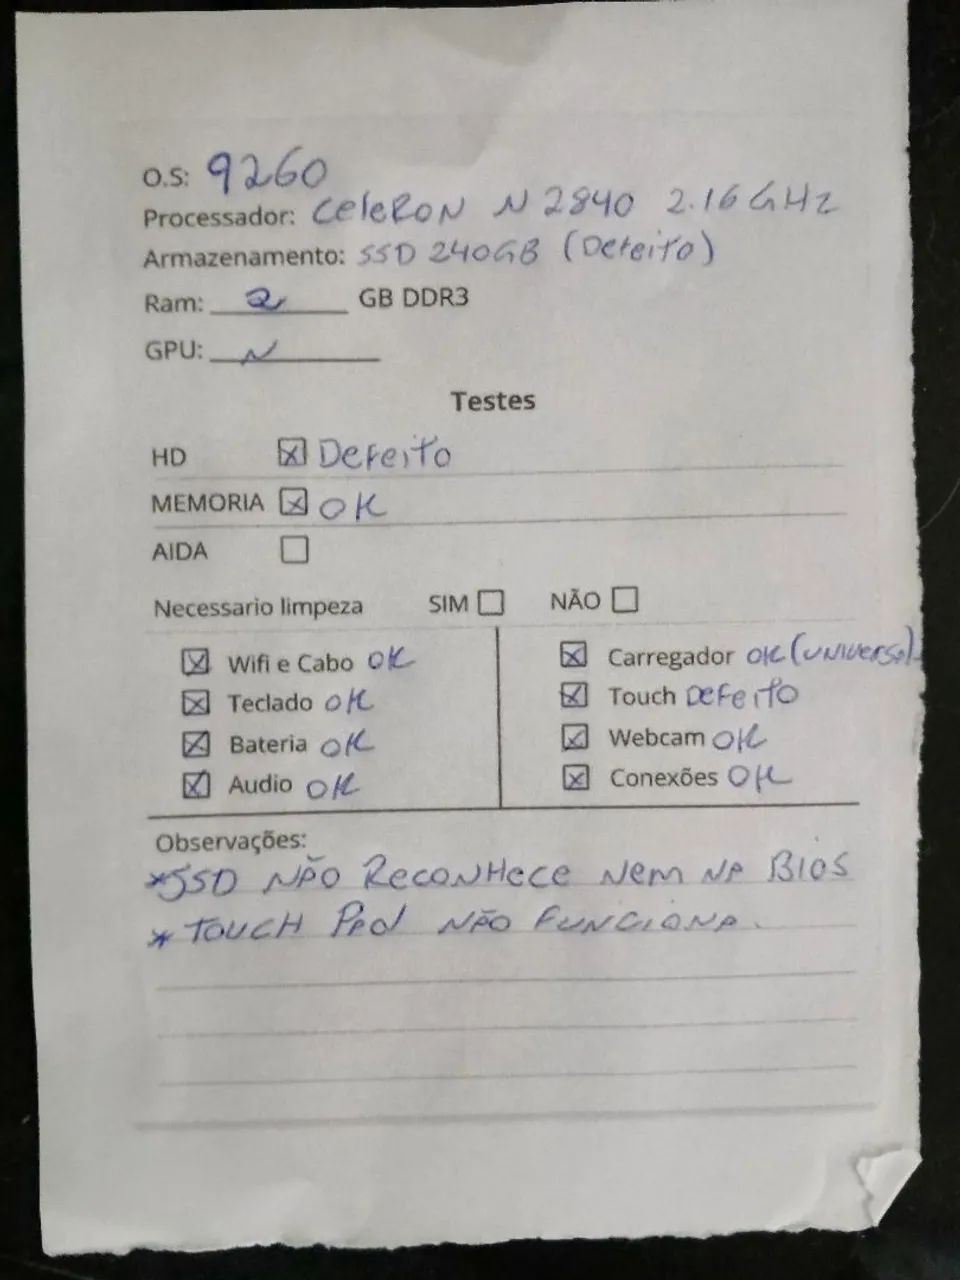 O.S: 9260
Processador: CeleRON N2840 2.16GHz
Armazenamento: SSD 240GB (Defeito)
Ram: 2 GB DDR3
GPU: N
Testes
HD ☒ Defeito
MEMORIA ☒ OK
AIDA ☐
Necessario limpeza SIM ☐ NÃO ☐
☒ Wifi e Cabo OK
☒ Teclado OK
☒ Bateria OK
☒ Audio OK
☒ Carregador OK (UNIVERSAL)
☒ Touch DEFEITO
☒ Webcam OK
☒ Conexões OK
Observações:
*SSD NÃO RECONHECE NEM NA BIOS
* TOUCH PAD NÃO FUNCIONA.